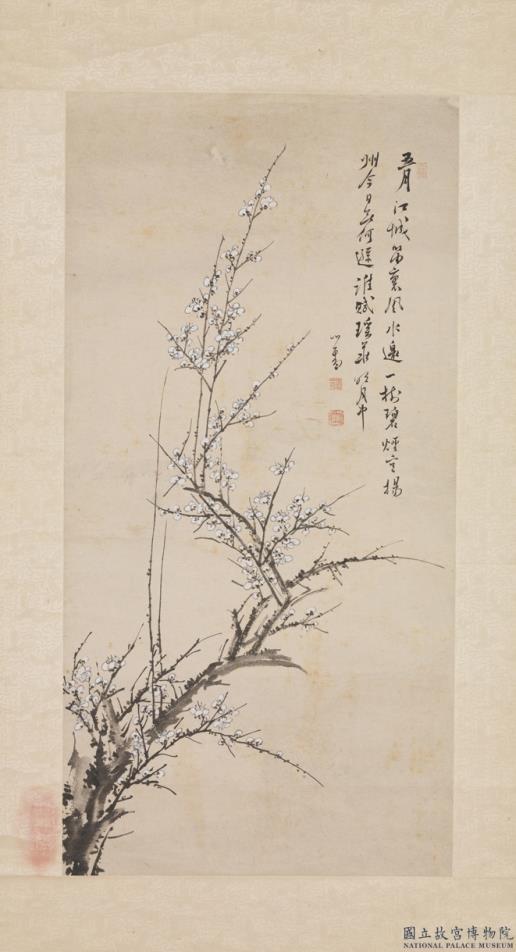 五月江城笛裏風水邊一樹碧煙空揚
州今日無何遜誰賦瑤華明月中
心畬
國立故宮博物院
NATIONAL PALACE MUSEUM